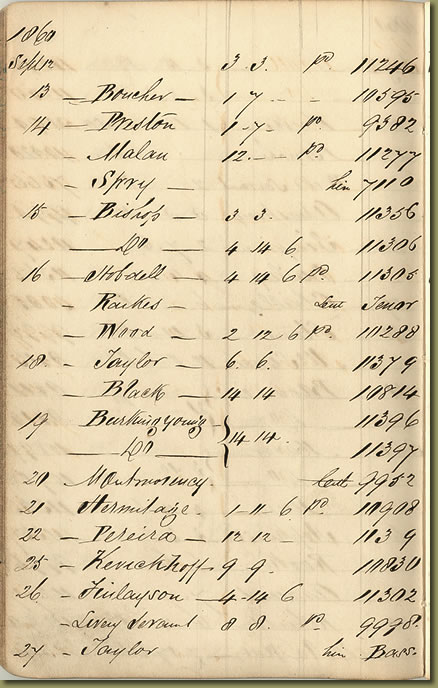 1860
Sept 12 3 3. pd 11246
13 — Boucher — 1 7 - - 10595
14 — Preston 1 - 7 - pd. 9382
— Malan 12. - pd. 11277
— Spry — him 7110
15 — Bishop — 3 3. 11356
— Do — 4 14 6 11306
16 — Stobdell — 4 14 6 pd. 11305
— Raikes — Lent Tenor
— Wood — 2 12 6 pd. 10288
18. — Taylor — 6. 6. 11379
— Black — 14 14 10814
19 11396
— Do — } 14 14. 11397
20 Montmorency. Lent 9952
21 — Hermitage. 1 - 11 - 6 pd 10908
22 — Pereira — 12 12 — 113 9
25 — 9 9. 10830
26 — Finlayson — 4 - 14 6 11302
— Livery Servant 8 8. pd. 9998.
27 — Taylor him Bass.